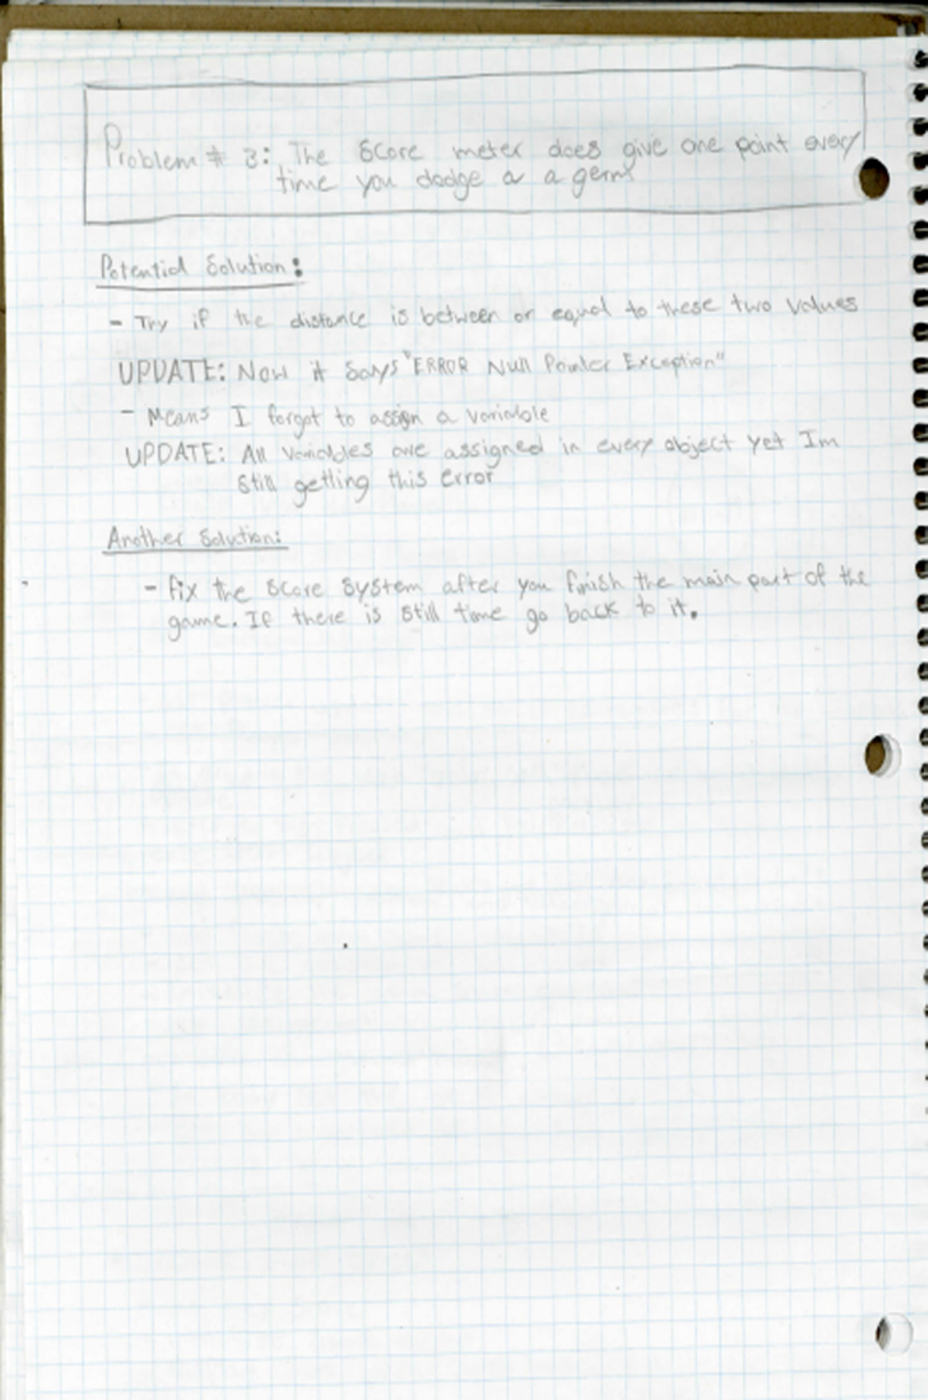 Problem # 3: The Score meter does give one point every
time you dodge a a germ
Potential Solution:
- Try if the distance is between or equal to these two values
UPDATE: Now it Says "ERROR Null Pointer Exception"
- Means I forgot to assign a variable
UPDATE: All variables are assigned in every object yet Im
Still getting this error
Another Solution:
- fix the Score System after you finish the main part of the
game. If there is still time go back to it.